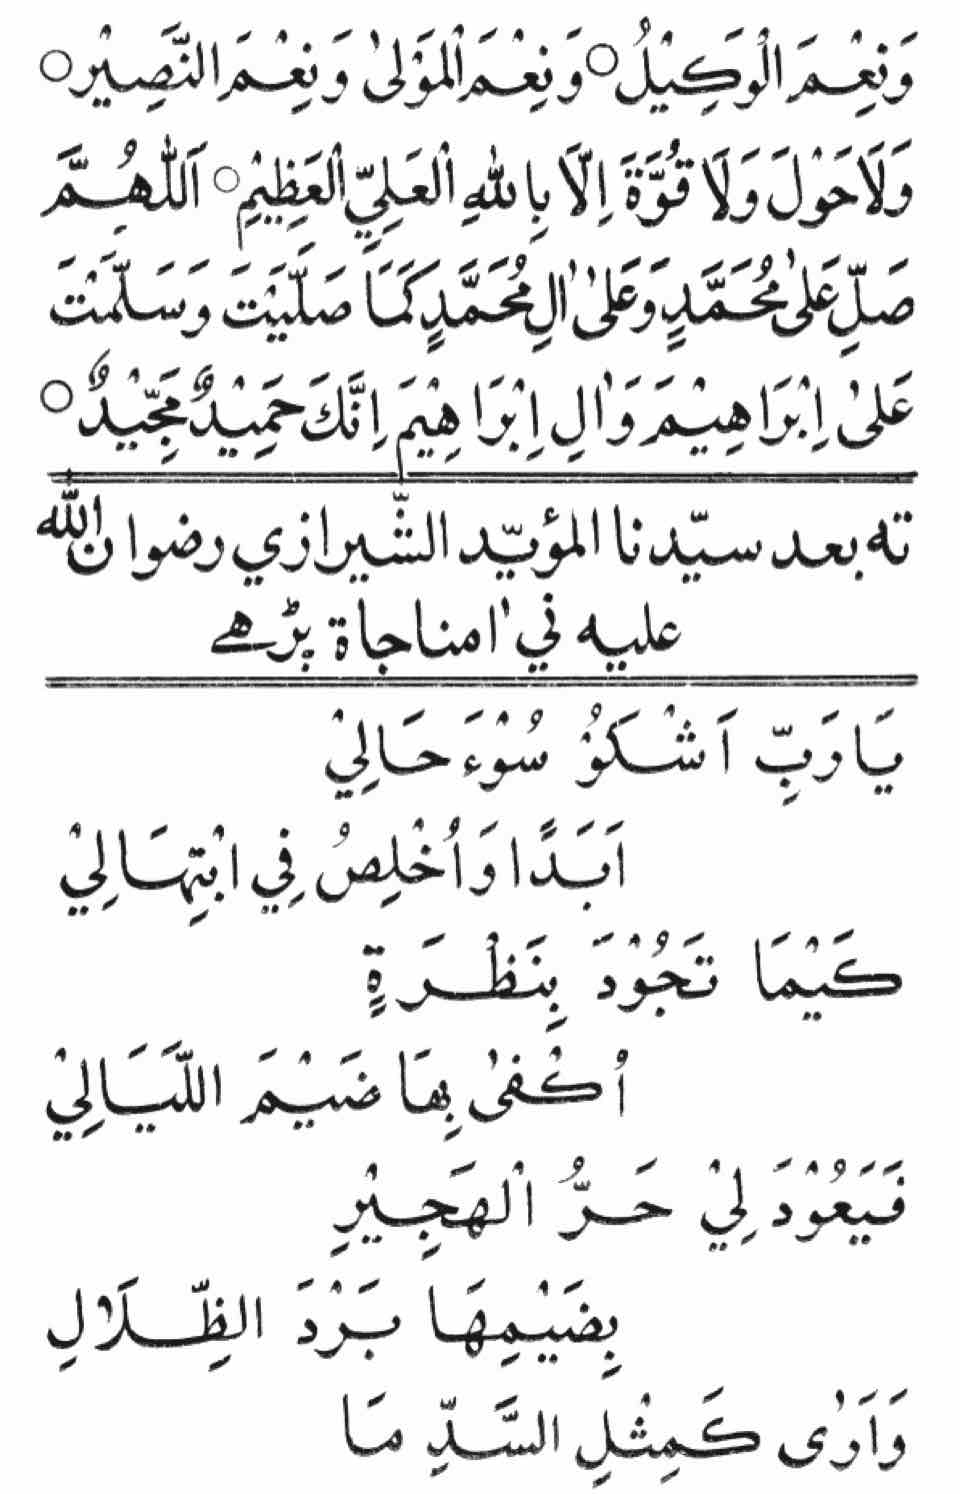 وَنِعْمَ الْوَكِيْلُ ○ وَنِعْمَ الْمَوْلٰى وَنِعْمَ النَّصِيْر ○
وَلَاحَوْلَ وَلَا قُوَّةَ اِلَّا بِاللهِ الْعَلِيِّ الْعَظِيْمِ ○ اَللّٰهُمَّ
صَلِّ عَلٰى مُحَمَّدٍ وَعَلٰى اٰلِ مُحَمَّدٍ كَمَا صَلَّيْتَ وَسَلَّمْتَ
عَلٰى اِبْرَاهِيْمَ وَاٰلِ اِبْرَاهِيْمَ اِنَّكَ حَمِيْدٌ مَّجِيْدٌ ○
ته بعد سيّدنا المؤيّد الشّيرازي رضوان الله
عليه ني اٰ مناجاة پڑھے
يَا رَبِّ اَشْكُوْ سُوْءَ حَالِيْ
اَبَدًا وَاُخْلِصُ فِي ابْتِهَالِيْ
كَيْمَا تَجُوْدَ بِنَظْرَةٍ
اُكْفٰى بِهَا ضَيْمَ اللَّيَالِيْ
فَيَعُوْدَ لِيْ حَرُّ الْهَجِيْرِ
بِضَيْمِهَا بَرْدَ الظِّلَالِ
وَاَرٰى كَمِثْلِ السَّدِّ مَا